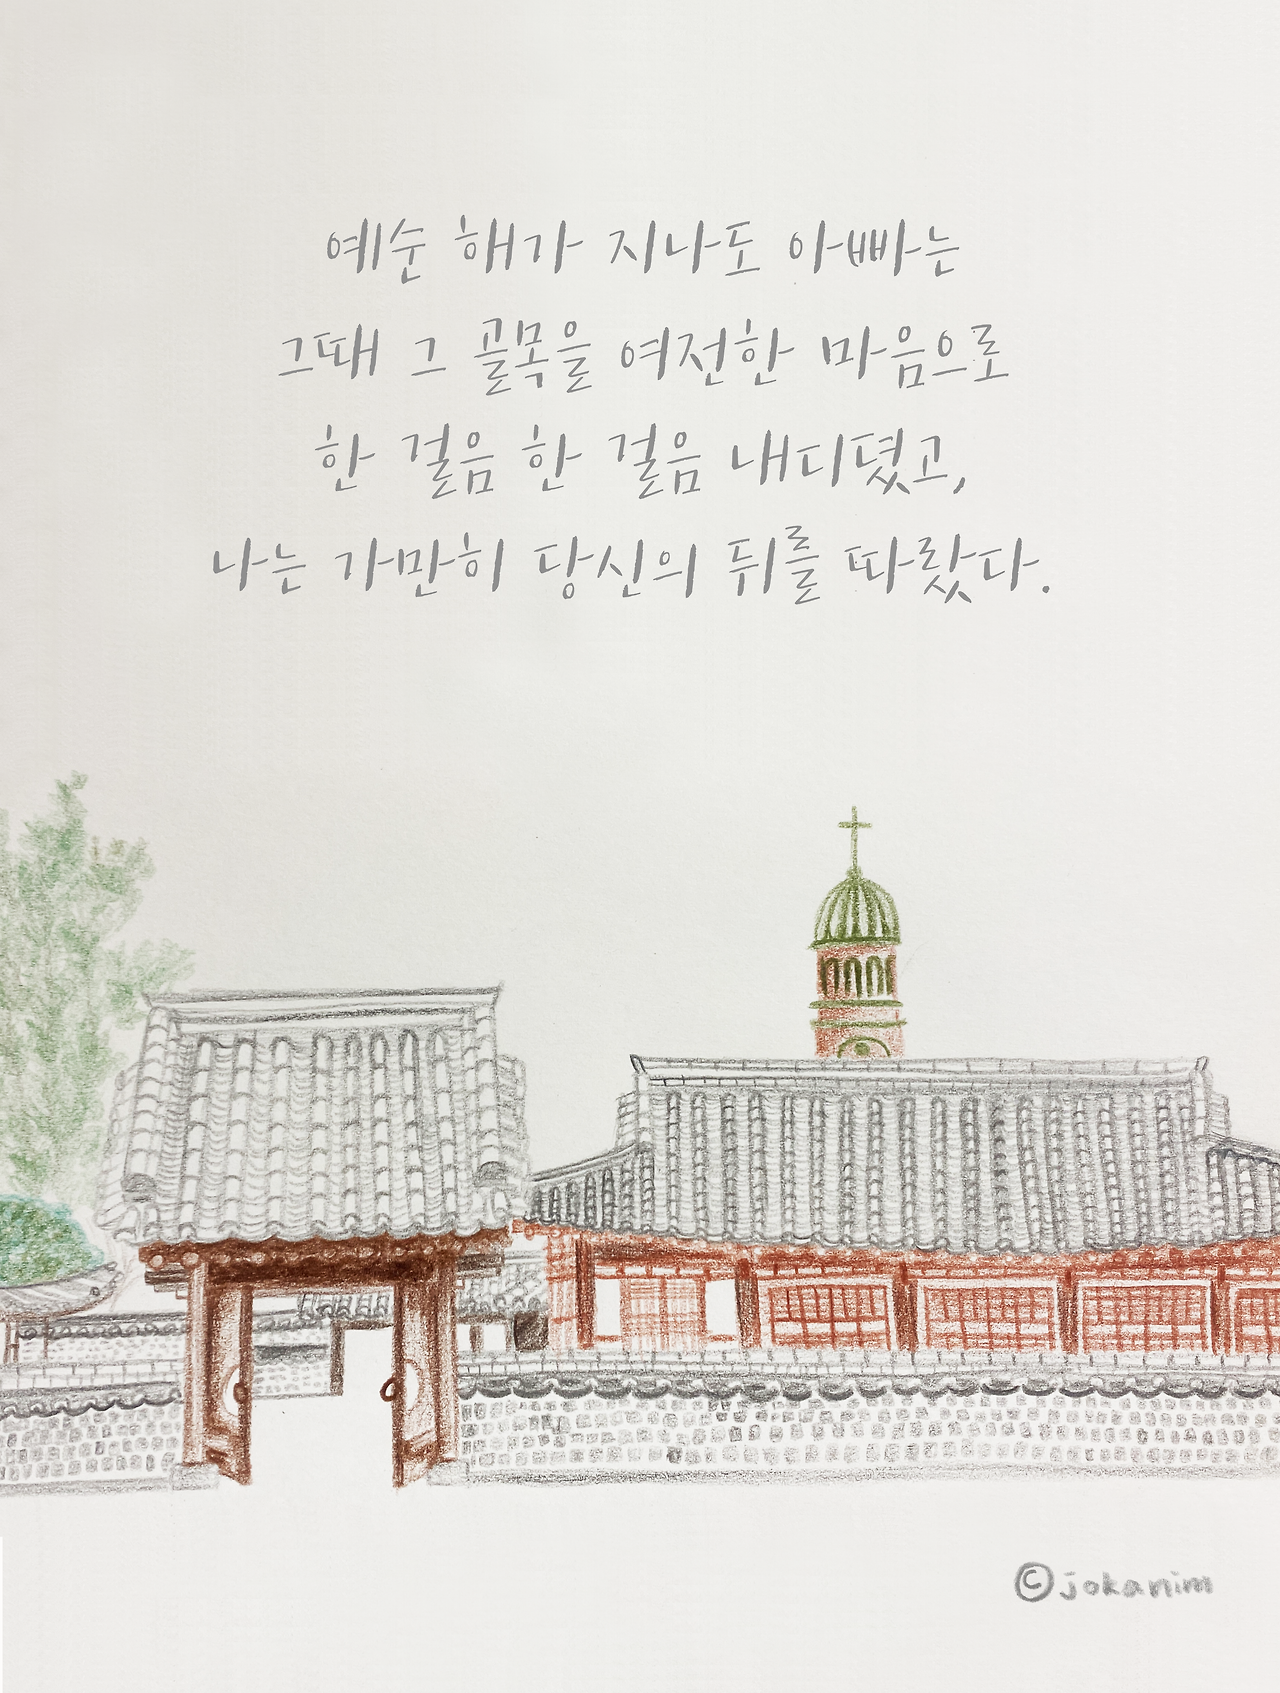 예순 해가 지나도 아빠는
그때 그 골목을 여전한 마음으로
한 걸음 한 걸음 내디뎠고,
나는 가만히 당신의 뒤를 따랐다.
©jokanim